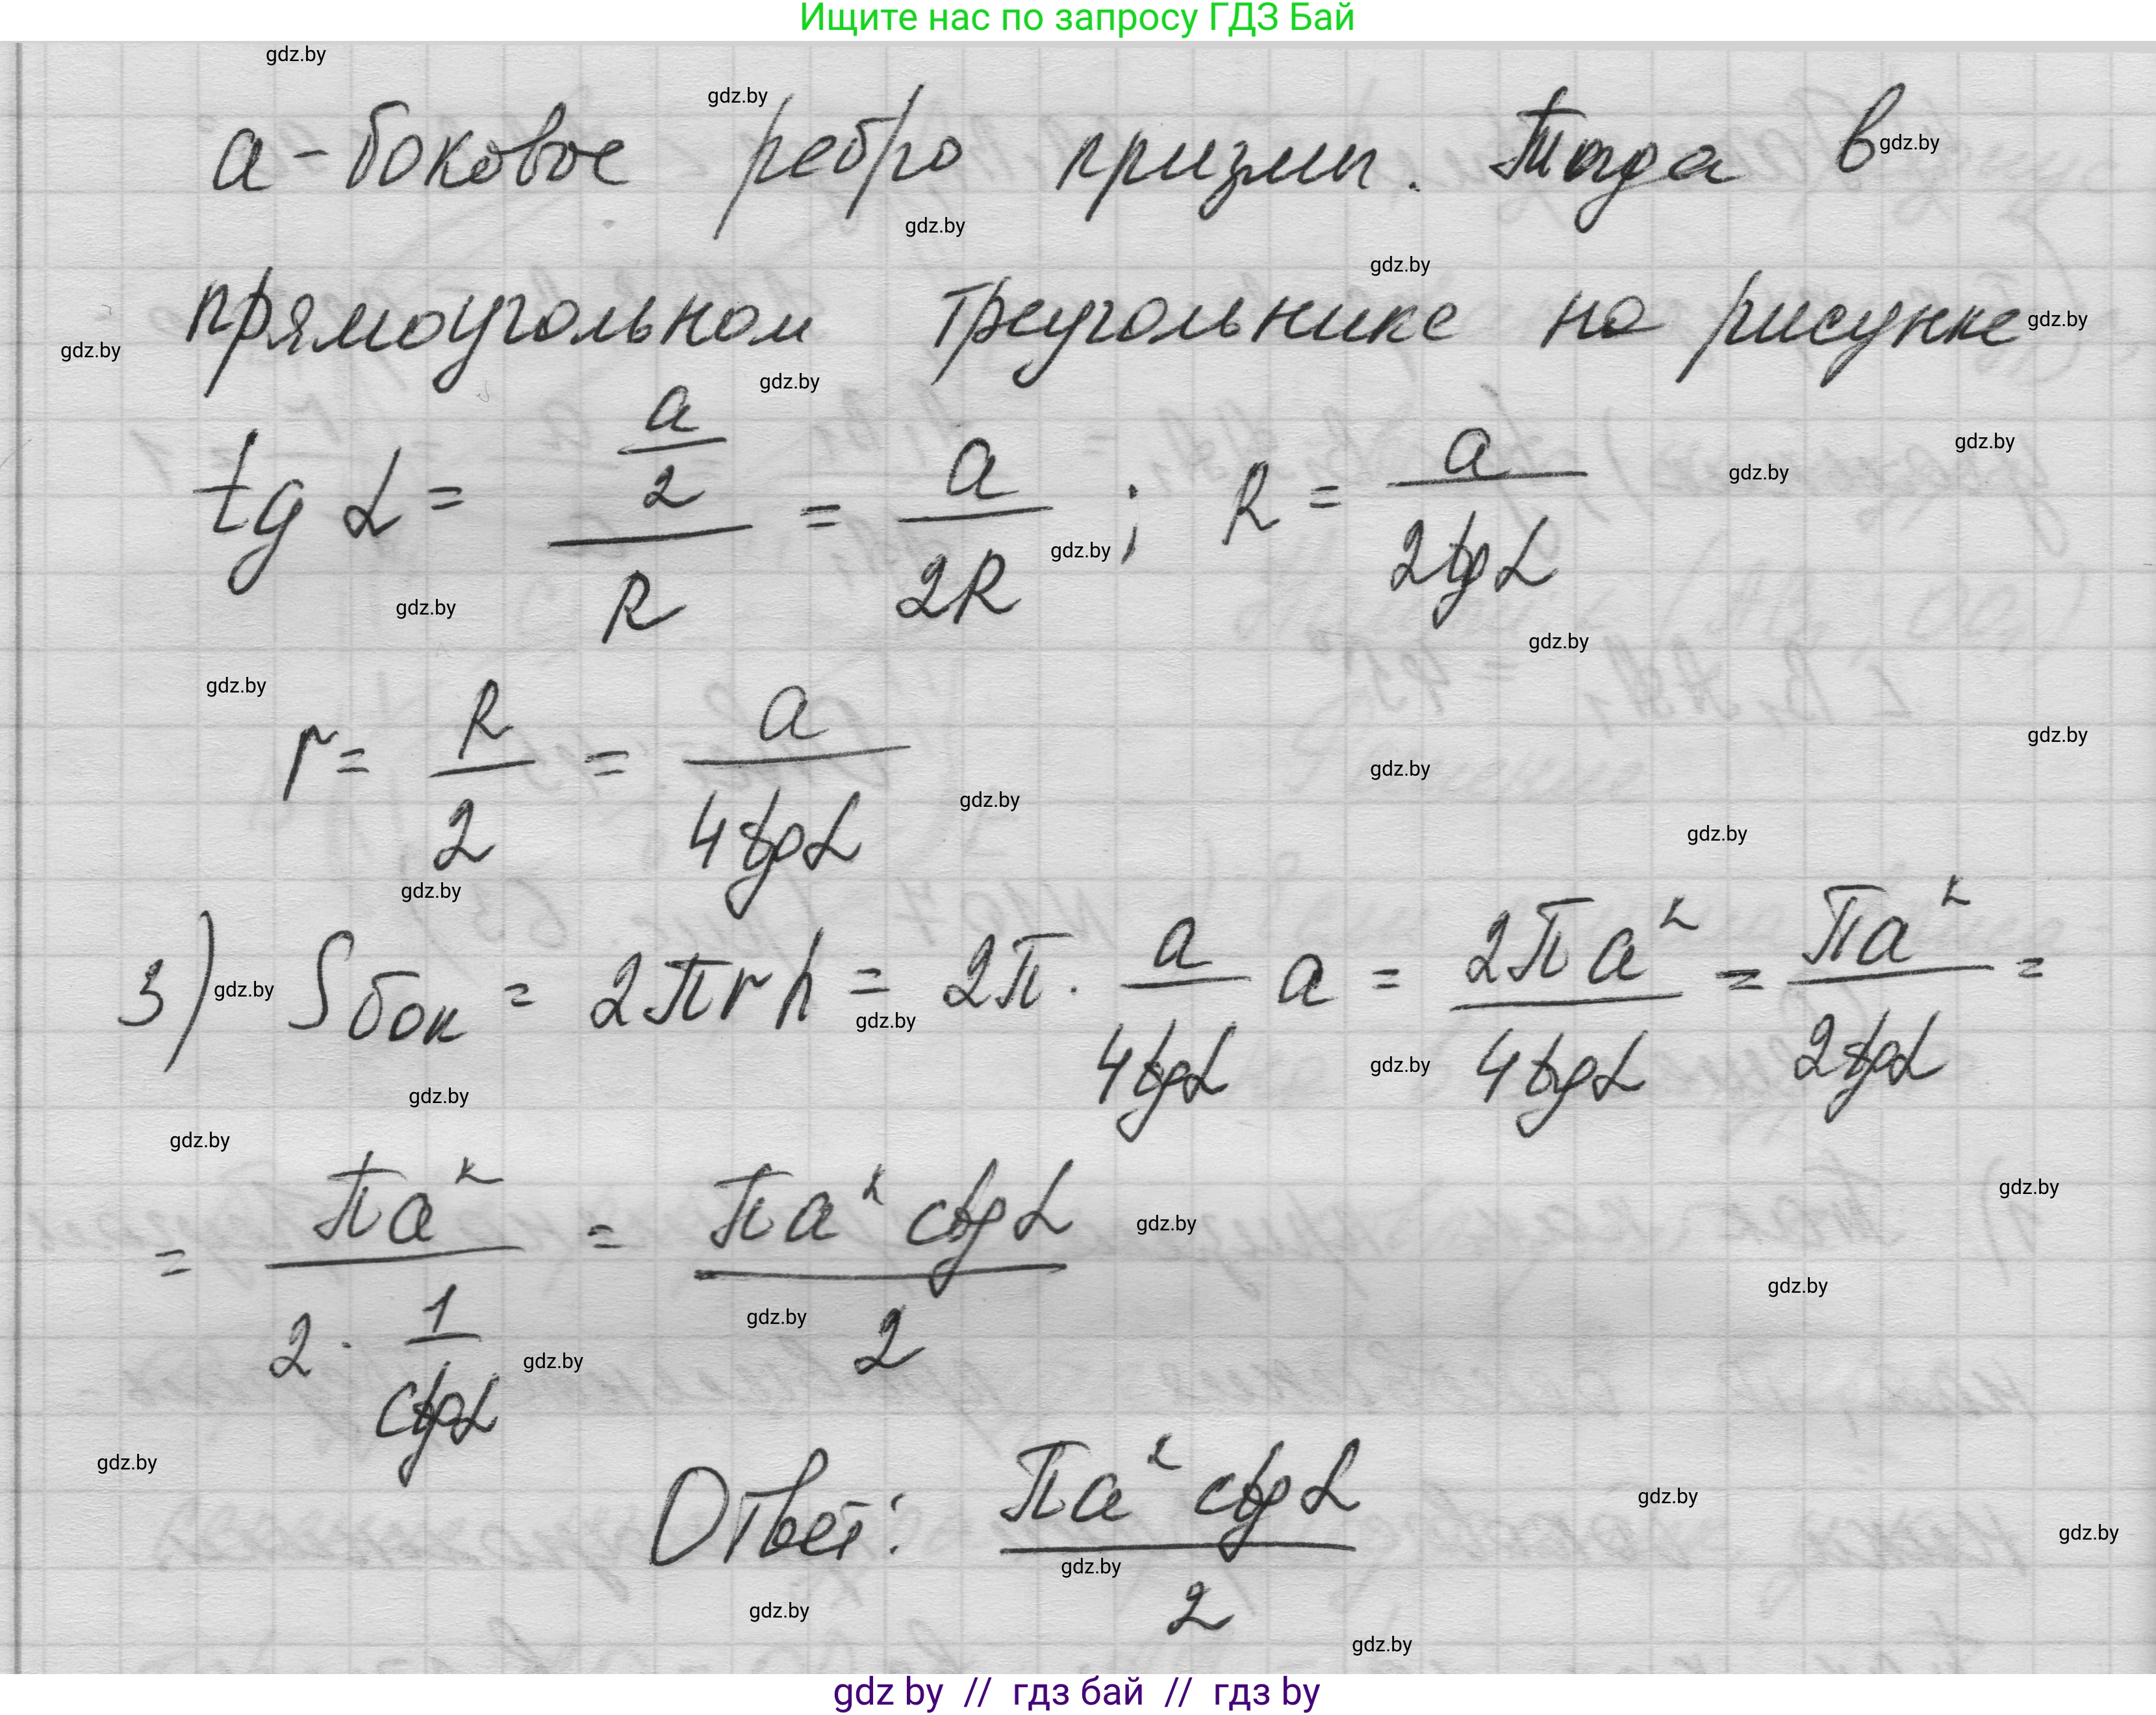 Ищите нас по запросу ГДЗ Бай
a - боковое ребро призмы. Тогда в
прямоугольном треугольнике на рисунке
tg α = (a/2)/R = a/2R ; R = a/2tgα
r = R/2 = a/4tgα
3) Sбок = 2πrh = 2π · a/4tgα a = 2πa²/4tgα = πa²/2tgα =
= πa²/(2 · 1/ctgα) = πa² ctgα/2
Ответ: πa² ctgα/2
gdz by // гдз бай // гдз by